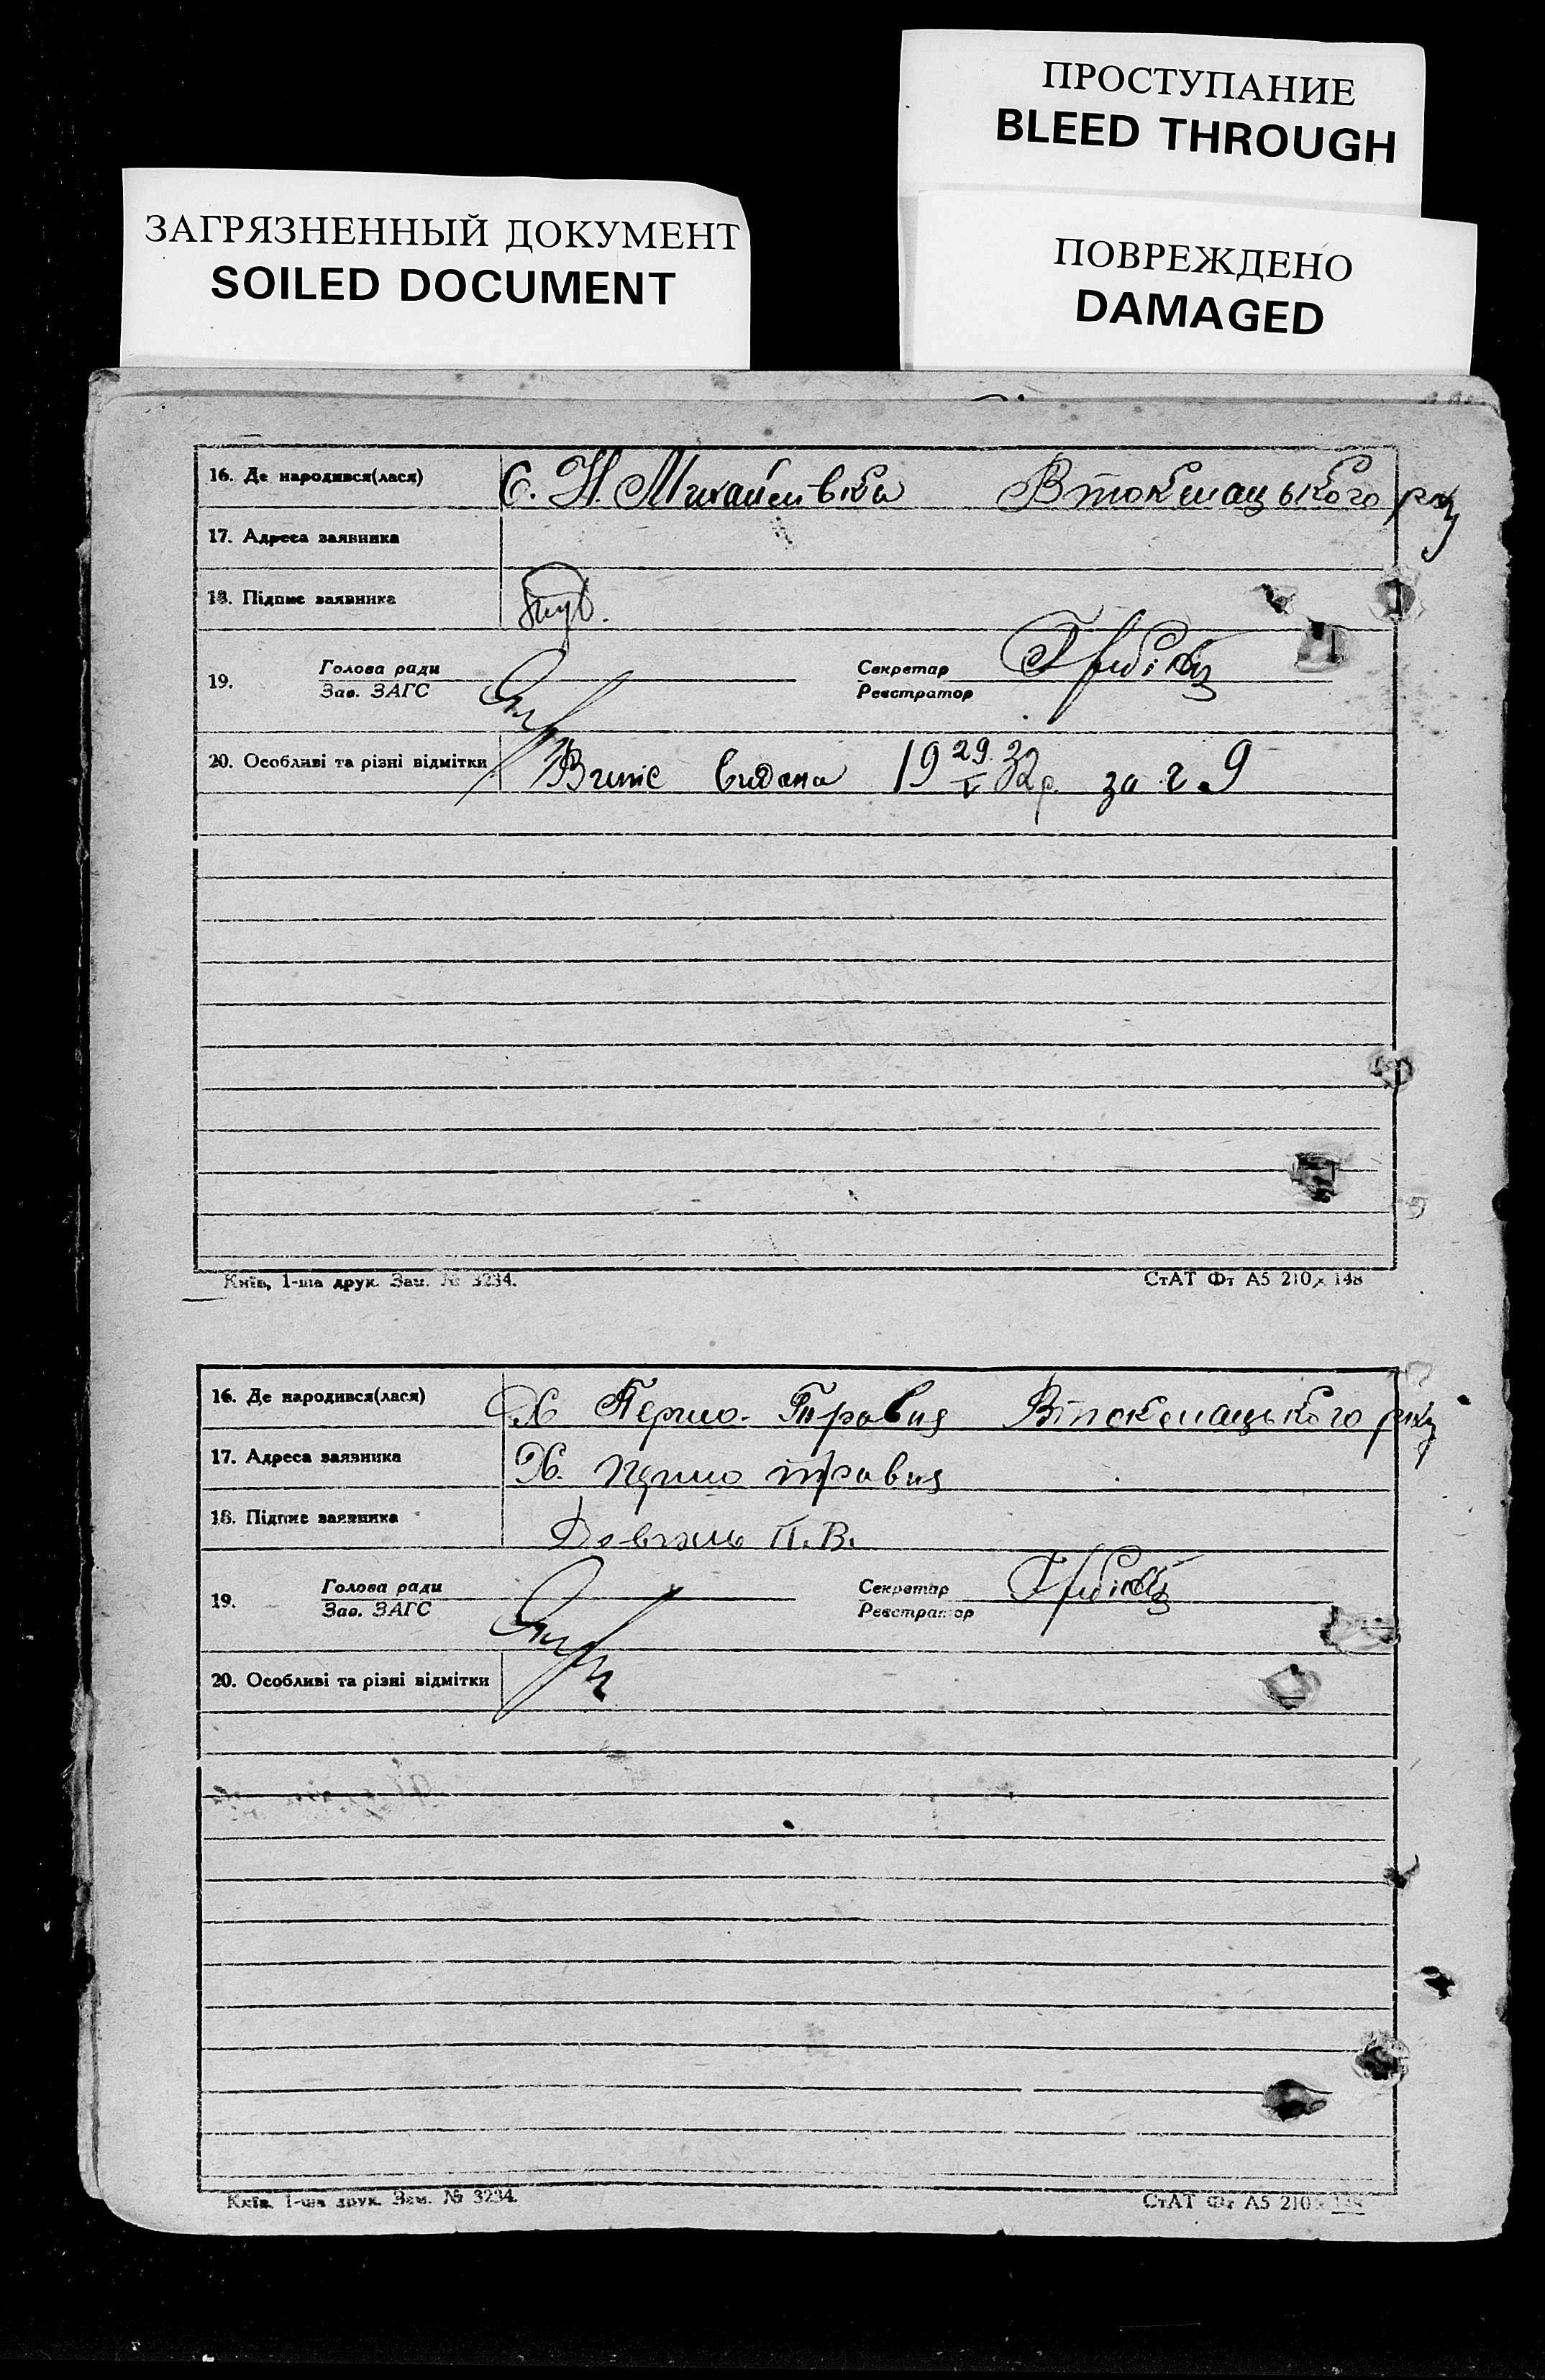 ПРОСТУПАНИЕ
BLEED THROUGH
ЗАГРЯЗНЕННЫЙ ДОКУМЕНТ
SOILED DOCUMENT
ПОВРЕЖДЕНО
DAMAGED
16. Де народився(лася) С. Н. Михайлівка Втокмацького р-ну
17. Адреса заявника
18. Підпис заявника
19. Голова ради
Зав. ЗАГС
Секретар
Реєстратор
20. Особливі та різні відмітки Випис видана 19 29/V 32 р. за ч. 9
Київ, 1-ша друк. Зам. № 3234.
СтАТ Фт А5 210 x 148
16. Де народився(лася) Х Перше-Травня Втокмацького р-ну
17. Адреса заявника Х. Перше травня
18. Підпис заявника П. В.
19. Голова ради
Зав. ЗАГС
Секретар
Реєстратор
20. Особливі та різні відмітки
Київ, 1-ша друк. Зам. № 3234.
СтАТ Фт А5 210 x 148